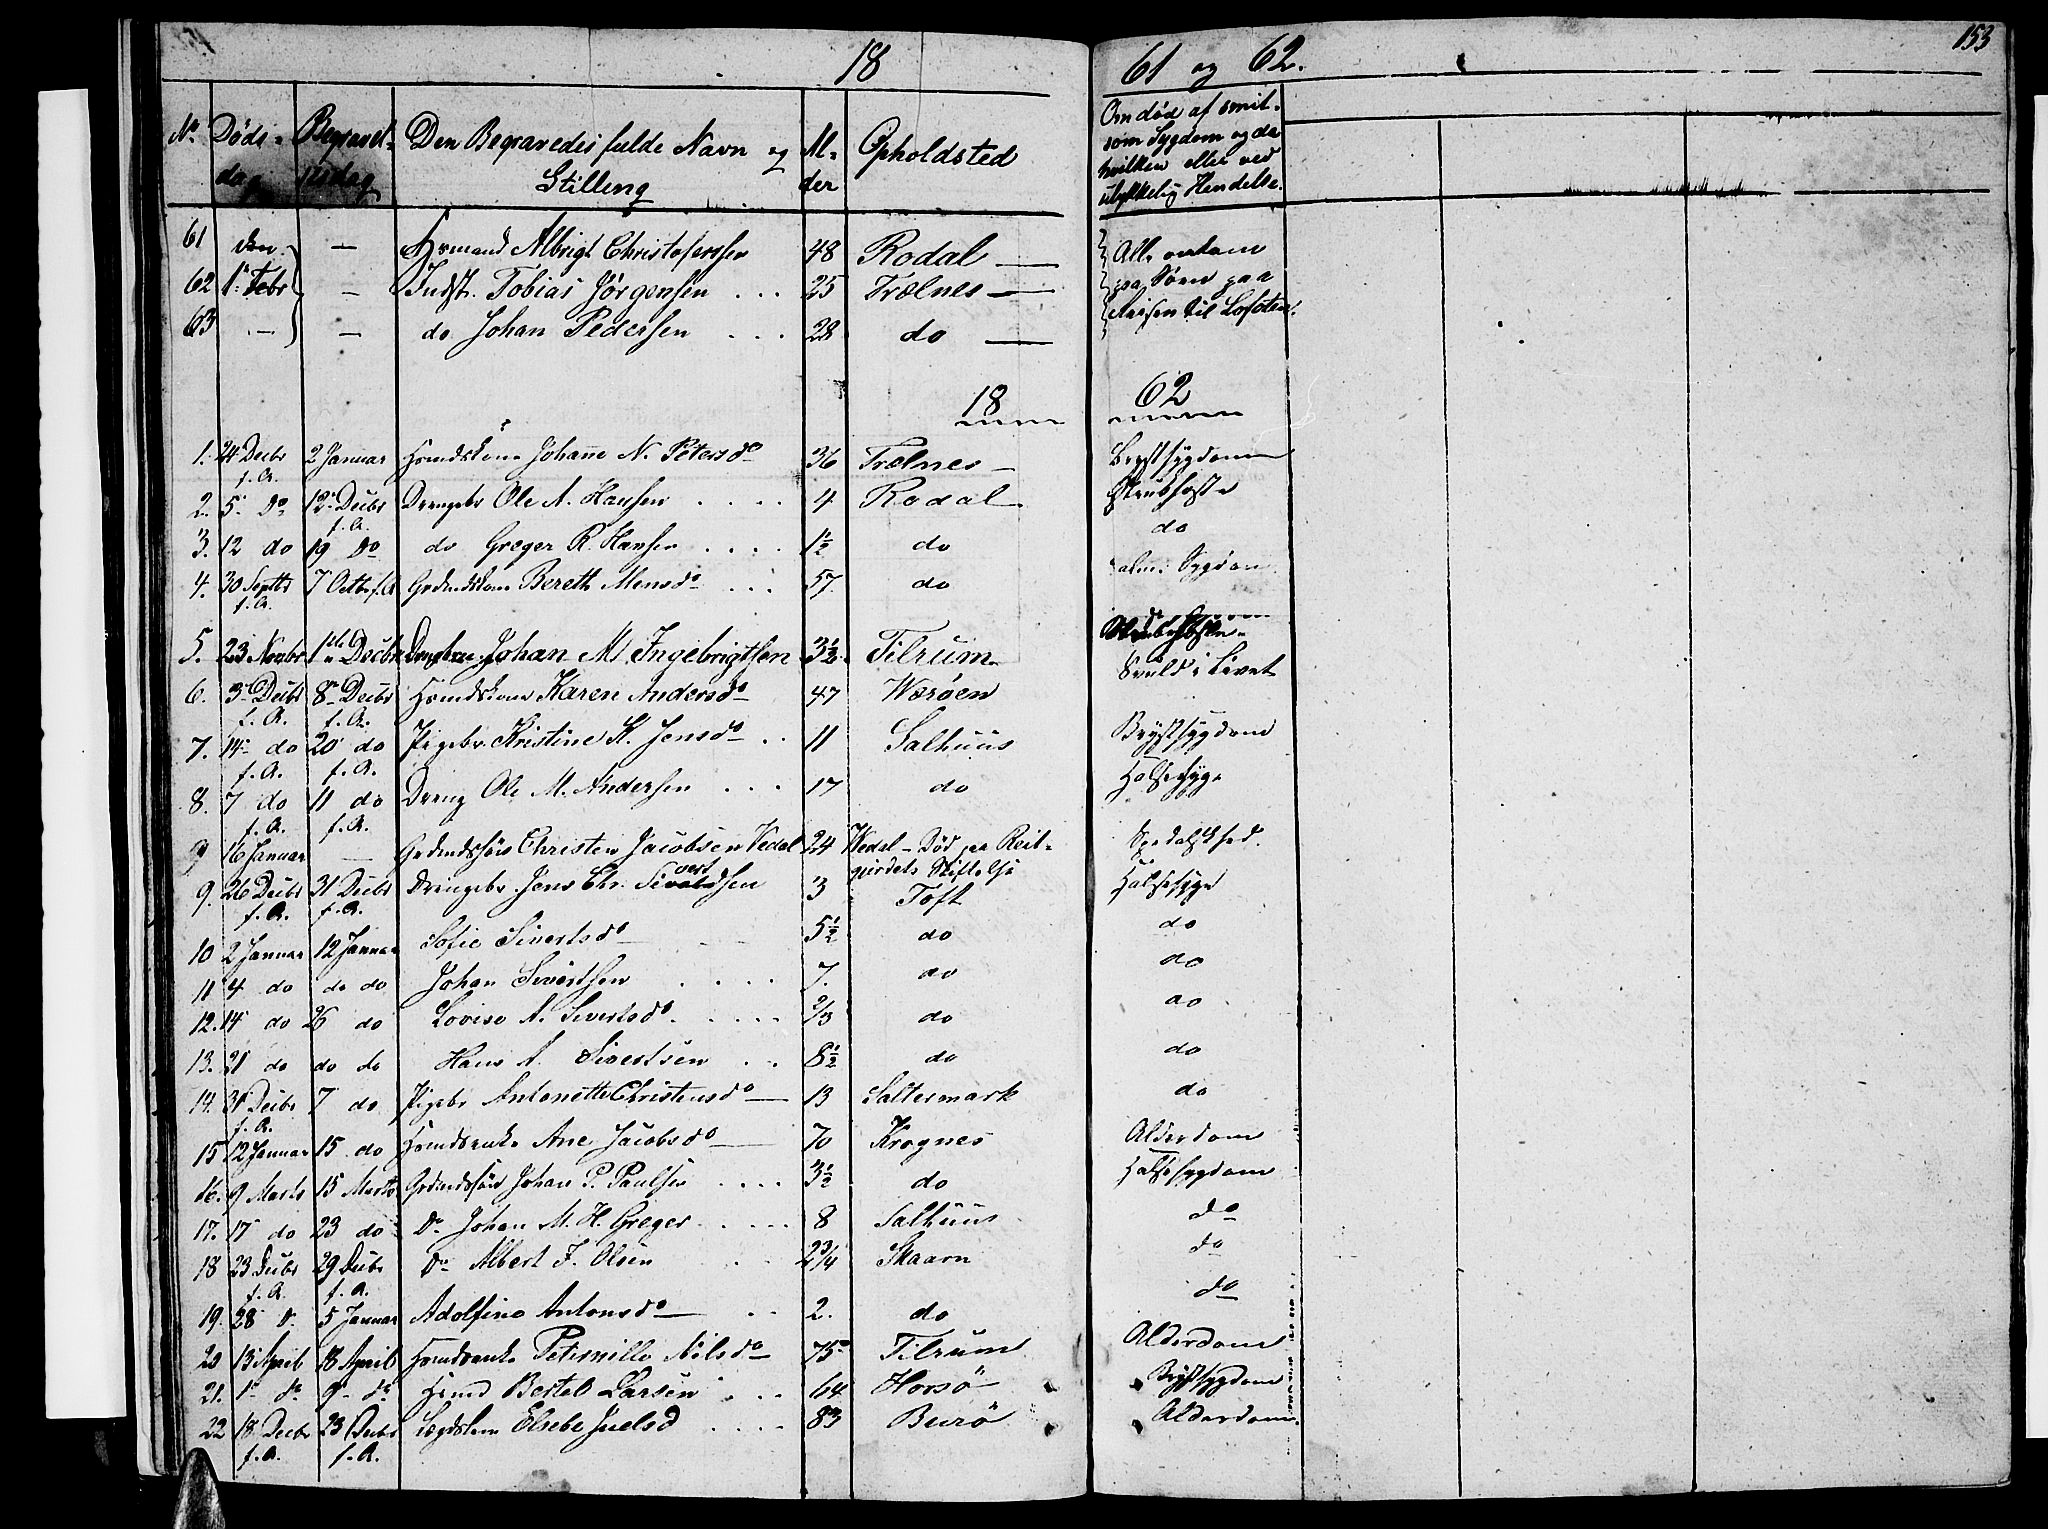 153
18 61 og 62.
No Døds-dag Begravelsesdag Den Begravedes fulde Navn og Stilling Alder Opholdsted Om død af smitsom Sygdom og da hvilken eller ved ulykkelig Hendelse.
61 den — Hmand Albrigt Christofersen 48 Rodal — Alle omkom
62 1. Febr — Indst. Tobias Jörgensen 25 Trælnes — paa Søen paa
63 — — do Johan Pedersen 28 do — Reisen til Lofoten.
18 62
1. 24 Decbr f.A. 2 Januar Hmdskone Johanne N. Petersdo 36 Trælnes — Brystsygdom
2. 5. Do 12. Decbr f.A. Drengebr Ole A. Hansen 4 Rodal Strubehoste
3. 12 do 19 Do do Greger R. Hansen 1½ do do
4. 30 Septbr f.A. 7 Octbr f.A. Grdmdskone Bereth Monsdo 57. do alm. Sygdom
5. 23 Novbr 1ste Decbr Drengebarn Johan M. Ingebrigtsen 3½ Tilrum Strubehoste
6. 3 Decbr f.A. 8 Decbr f.A. Hmdskone Karen Andersdo 47 Wærøen Svuld i Livet
7. 14 do f.A. 20 do f.A. Pigebr. Kristine K. Jensdo 11 Salhuus Brystsygdom
8. 7 do f.A. 11 do f.A. Dreng Ole M. Andersen 17 do Halsesyge
9 16 Januar — Grdmdssøn Christen Jacobsen Vedal 24 Wedal — Død paa Reitgjerdets Stiftelse Spedalskhed.
9. 26 Decbr f.A. 31 Decbr f.A. Drengebr. Jens Chr. Sivertsen 3 Toft Halsesyge
10 2 Januar 12 Januar Sofie Sivertsdo 5½ do do
11 4 do do do Johan Sivertsen 7. do do
12. 14 do 26 do Lovise A. Sivertsdo 2/3 do do
13. 21 do do do Hans A. Sivertsen 8½ do do
14. 31 Decbr f.A. 7 do Pigebr Antonette Christensdo 13 Saltermark do
15 12 Januar 15 do Hmdsenke Ane Jacobsdo 70 Krognes Alderdom
16. 9 Marts 15 Marts Grdmdssøn Johan P. Paulsen 3½ do Halssygdom
17. 17 do 23 do Do Johan M. H. Greger 8 Salhuus do
18 23 Decbr f.A. 29 Decbr f.A. Do Albert J. Olsen 2¾ Skaarn do
19. 28 Do 5 Januar Adolfine Antonsdo 2. do do
20 13 April 18 April Hmdsenke Petemille Nilsdo 75 Tilrum Alderdom
21. 1 do 9 do Hmd Bertel Larsen 64 Horsö Brystsygdom
22 18 Decbr f.A. 23 Decbr f.A. Lægdslem Elsebe Juelsd 83 Burö Alderdom